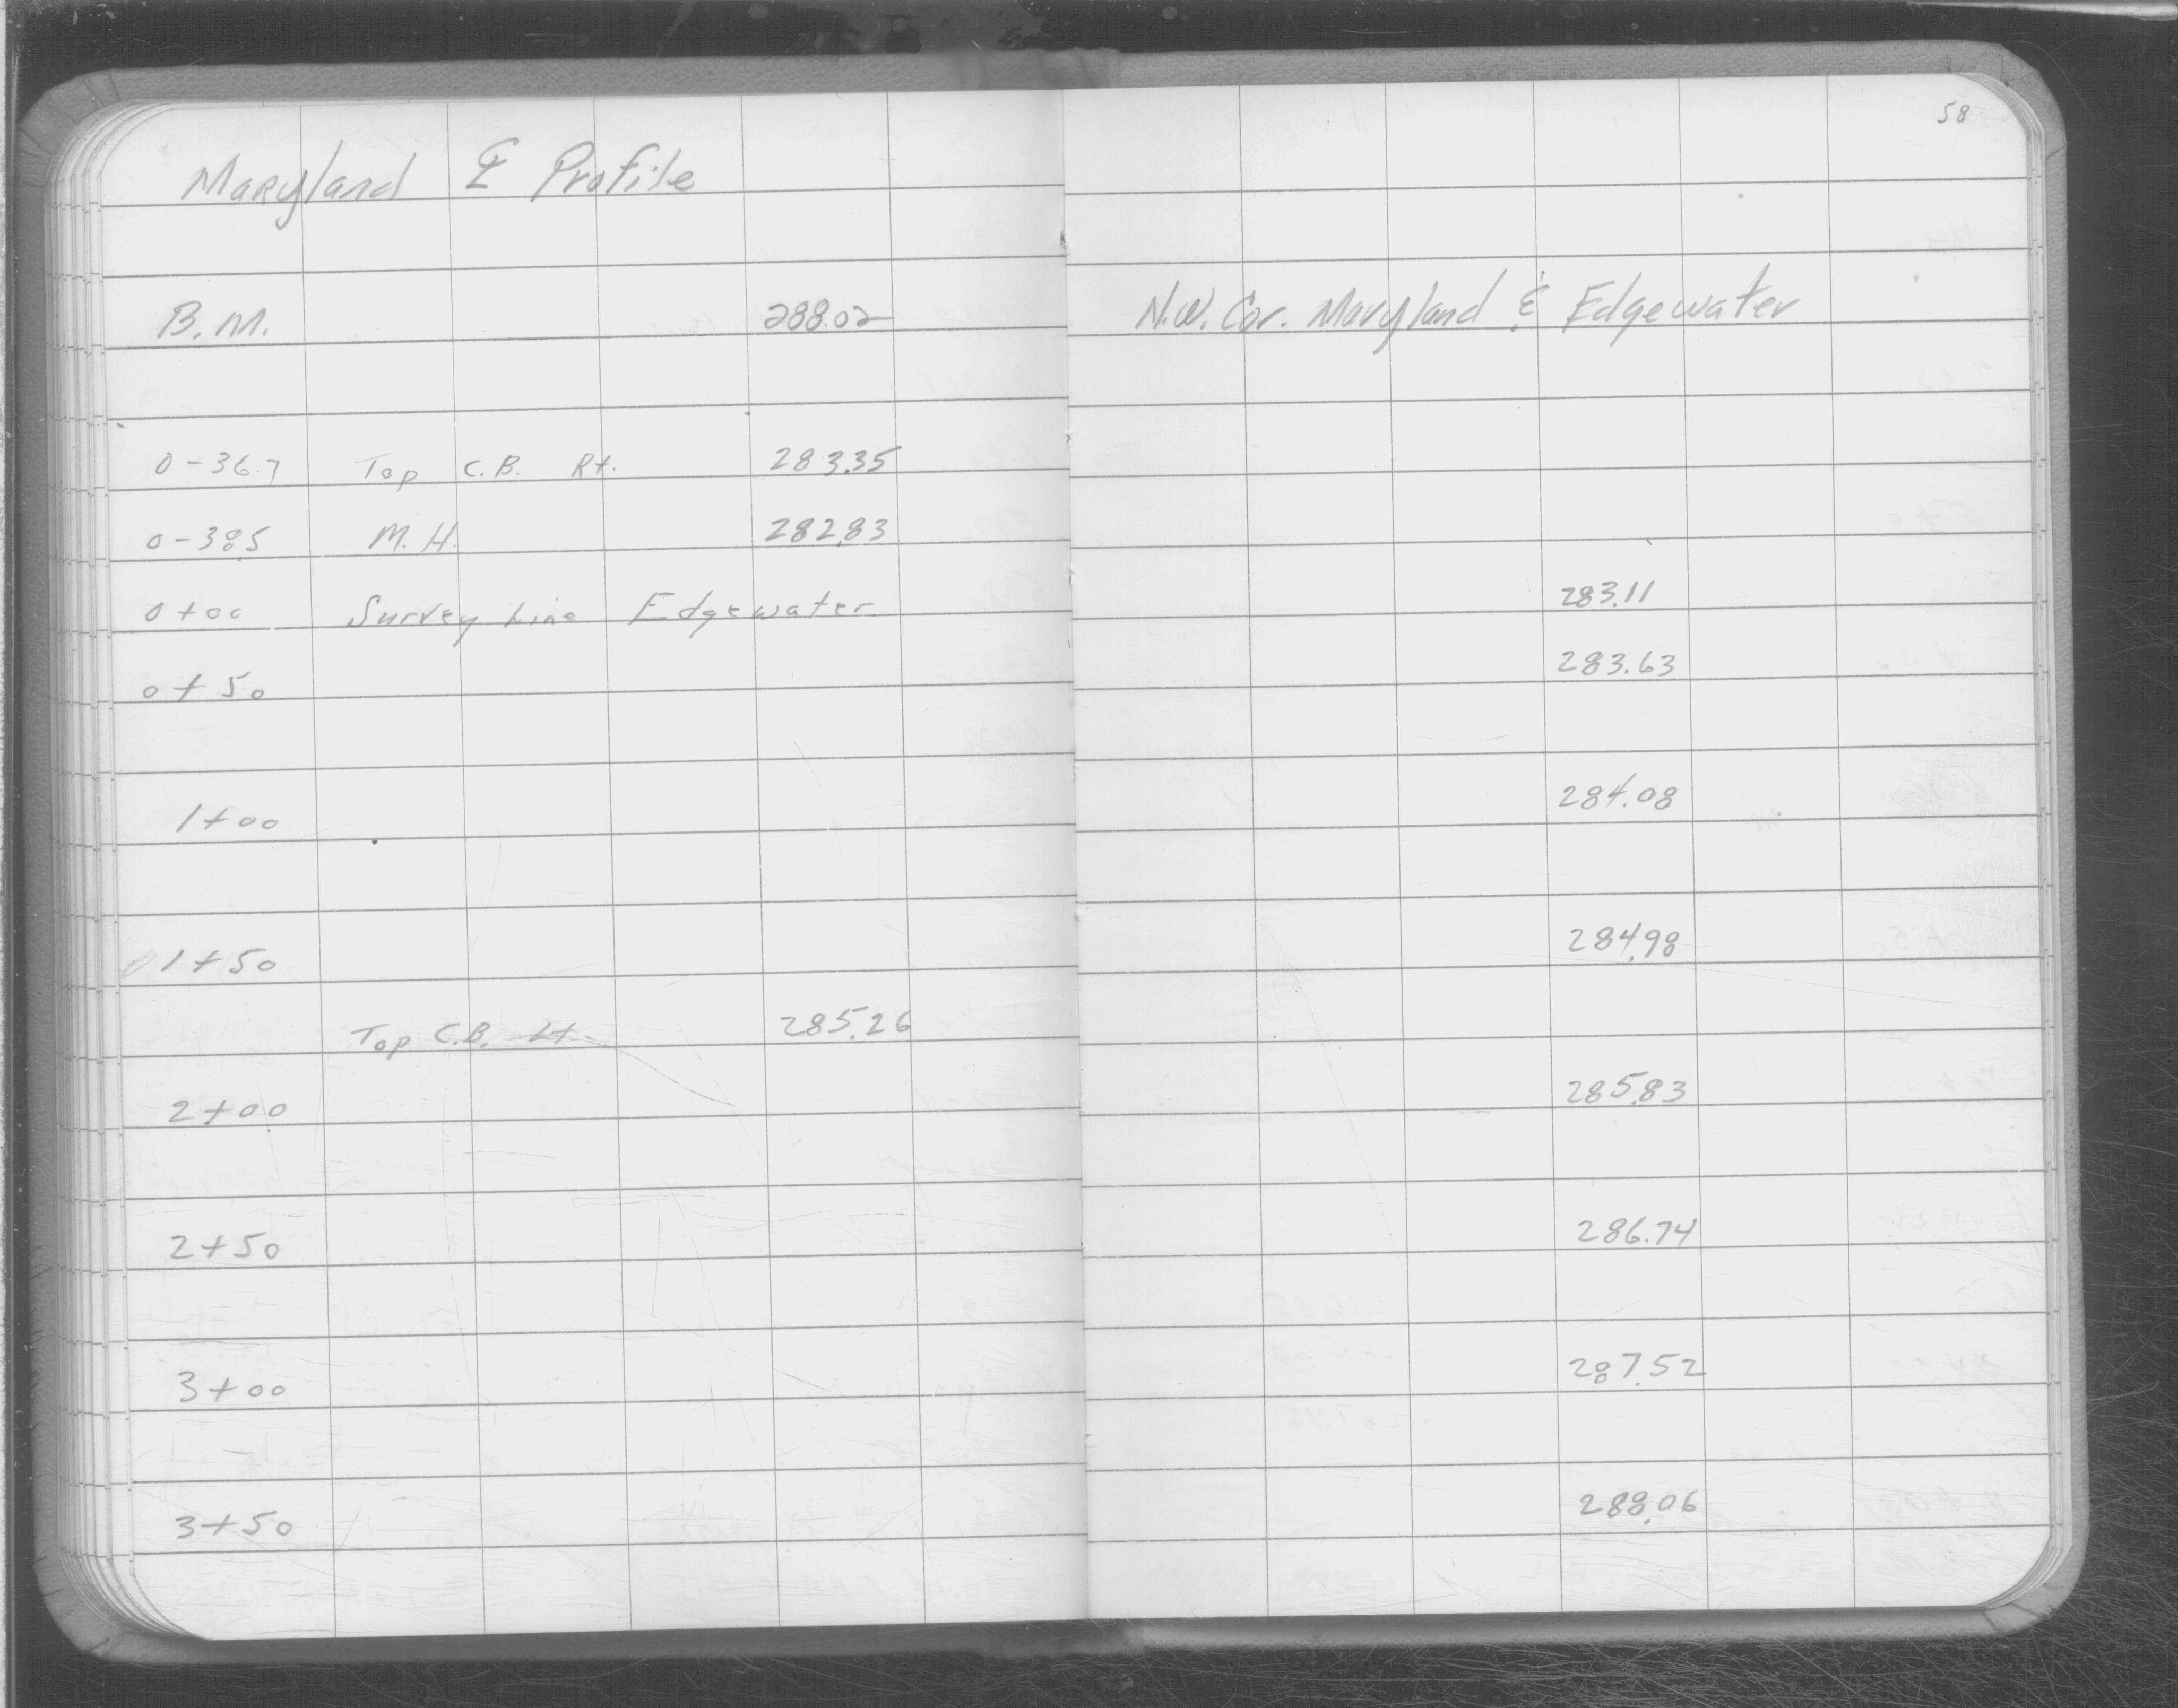 58
Maryland ℄ Profile
B.M. 288.02 N.W. Cor. Maryland & Edgewater
0-36.7 Top C.B. Rt. 283.35
0-38.5 M.H. 282.83
0+00 Survey Line Edgewater 283.11
0+50 283.63
1+00 284.08
1+50 284.98
Top C.B. Lt. 285.26
2+00 285.83
2+50 286.74
3+00 287.52
3+50 288.06